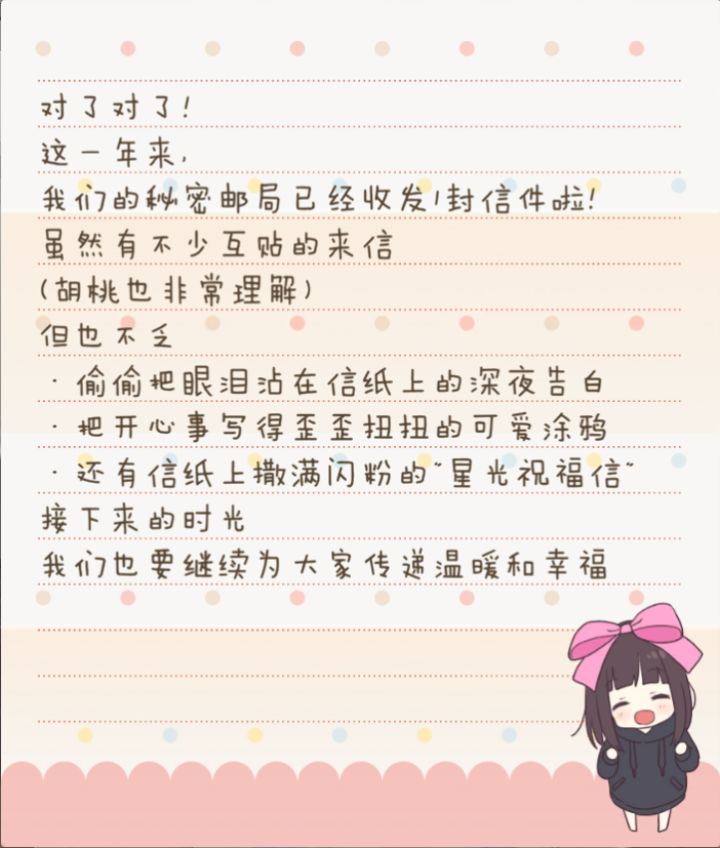 对了对了!
这一年来,
我们的秘密邮局已经收发1封信件啦!
虽然有不少互贴的来信
(胡桃也非常理解)
但也不乏
·偷偷把眼泪沾在信纸上的深夜告白
·把开心事写得歪歪扭扭的可爱涂鸦
·还有信纸上撒满闪粉的~星光祝福信~
接下来的时光
我们也要继续为大家传递温暖和幸福